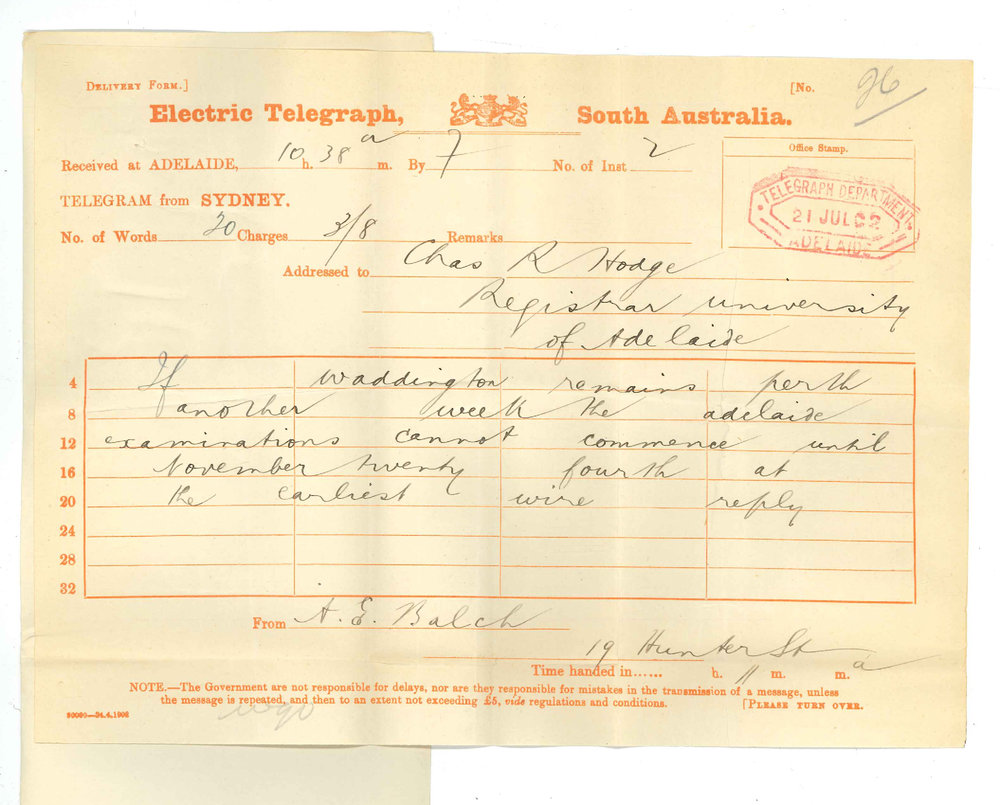 DELIVERY FORM.] [No. 96
Electric Telegraph, South Australia.
Received at ADELAIDE, 10 h. 38 a m. By 7 No. of Inst 2
Office Stamp.
TELEGRAPH DEPARTMENT
21 JUL 02
ADELAIDE
TELEGRAM from SYDNEY.
No. of Words 20 Charges 3/8 Remarks
Addressed to Chas R Hodge
Registrar university
of Adelaide
4 If waddington remains perth
8 another week the adelaide
12 examinations cannot commence until
16 November twenty fourth at
20 the earliest wire reply
24
28
32
From A. E. Balch
19 Hunter St
Time handed in...... h. 11 m. a m.
NOTE.—The Government are not responsible for delays, nor are they responsible for mistakes in the transmission of a message, unless
the message is repeated, and then to an extent not exceeding £5, vide regulations and conditions. [PLEASE TURN OVER.
24.4.1902